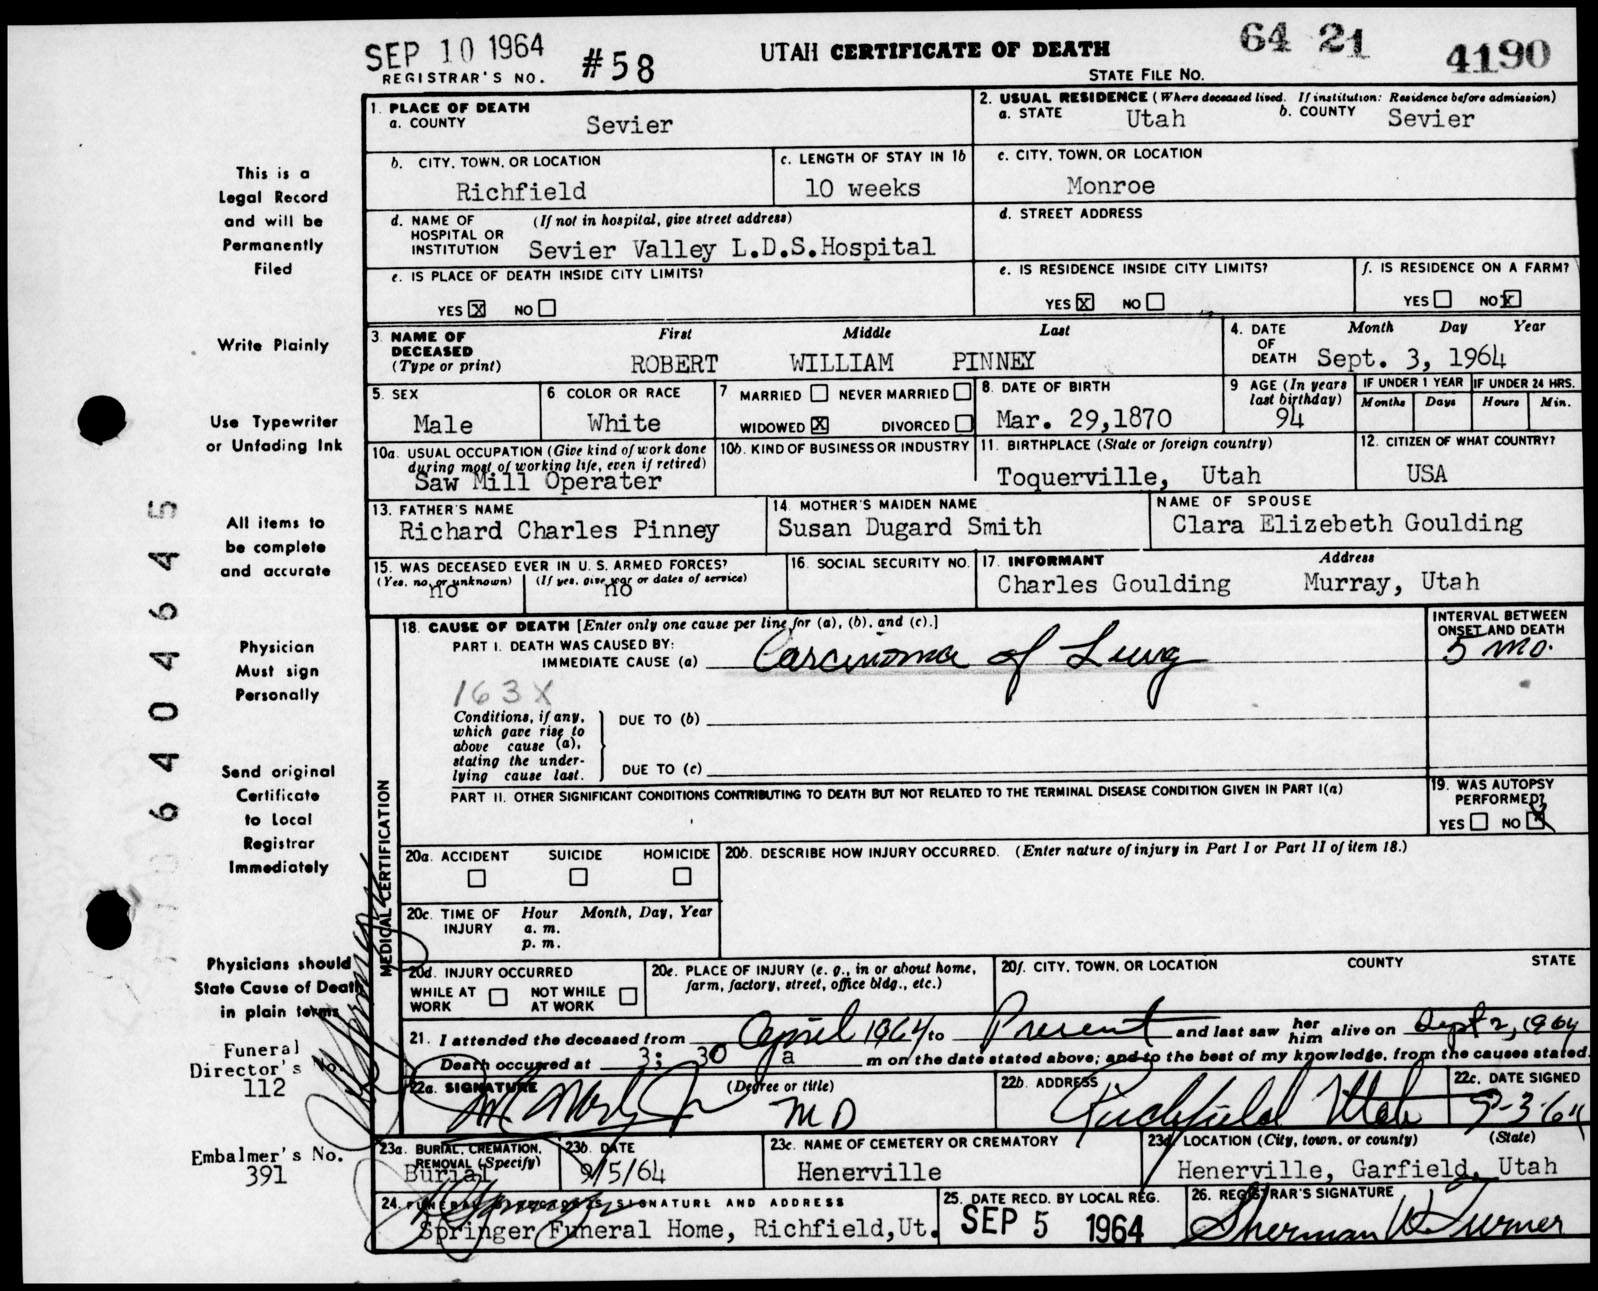 SEP 10 1964
REGISTRAR'S NO. #58
UTAH CERTIFICATE OF DEATH
64 21 4190
STATE FILE NO.
1. PLACE OF DEATH
a. COUNTY Sevier
2. USUAL RESIDENCE (Where deceased lived. If institution: Residence before admission)
a. STATE Utah b. COUNTY Sevier
b. CITY, TOWN, OR LOCATION
Richfield
c. LENGTH OF STAY IN 1b
10 weeks
c. CITY, TOWN, OR LOCATION
Monroe
d. NAME OF HOSPITAL OR INSTITUTION (If not in hospital, give street address)
Sevier Valley L.D.S.Hospital
d. STREET ADDRESS
e. IS PLACE OF DEATH INSIDE CITY LIMITS?
YES X NO
e. IS RESIDENCE INSIDE CITY LIMITS?
YES X NO
f. IS RESIDENCE ON A FARM?
YES NO X
3. NAME OF DECEASED (Type or print)
First Middle Last
ROBERT WILLIAM PINNEY
4. DATE OF DEATH
Month Day Year
Sept. 3, 1964
5. SEX
Male
6. COLOR OR RACE
White
7 MARRIED NEVER MARRIED
WIDOWED X DIVORCED
8. DATE OF BIRTH
Mar. 29,1870
9 AGE (In years last birthday)
94
IF UNDER 1 YEAR
Months Days
IF UNDER 24 HRS.
Hours Min.
10a. USUAL OCCUPATION (Give kind of work done during most of working life, even if retired)
Saw Mill Operater
10b. KIND OF BUSINESS OR INDUSTRY
11. BIRTHPLACE (State or foreign country)
Toquerville, Utah
12. CITIZEN OF WHAT COUNTRY?
USA
13. FATHER'S NAME
Richard Charles Pinney
14. MOTHER'S MAIDEN NAME
Susan Dugard Smith
NAME OF SPOUSE
Clara Elizebeth Goulding
15. WAS DECEASED EVER IN U. S. ARMED FORCES?
(Yes, no, or unknown) (If yes, give war or dates of service)
no no
16. SOCIAL SECURITY NO.
17. INFORMANT Address
Charles Goulding Murray, Utah
MEDICAL CERTIFICATION
18. CAUSE OF DEATH [Enter only one cause per line for (a), (b), and (c).]
PART I. DEATH WAS CAUSED BY:
IMMEDIATE CAUSE (a) Carcinoma of Lung
INTERVAL BETWEEN ONSET AND DEATH
5 mo.
163X
Conditions, if any, which gave rise to above cause (a), stating the underlying cause last.
DUE TO (b)
DUE TO (c)
PART II. OTHER SIGNIFICANT CONDITIONS CONTRIBUTING TO DEATH BUT NOT RELATED TO THE TERMINAL DISEASE CONDITION GIVEN IN PART I(a)
19. WAS AUTOPSY PERFORMED?
YES NO X
20a. ACCIDENT SUICIDE HOMICIDE
20b. DESCRIBE HOW INJURY OCCURRED. (Enter nature of injury in Part I or Part II of item 18.)
20c. TIME OF INJURY Hour Month, Day, Year
a. m.
p. m.
20d. INJURY OCCURRED
WHILE AT WORK NOT WHILE AT WORK
20e. PLACE OF INJURY (e. g., in or about home, farm, factory, street, office bldg., etc.)
20f. CITY, TOWN, OR LOCATION COUNTY STATE
21. I attended the deceased from April 1964 to Present and last saw her him alive on Sept 2, 1964
Death occurred at 3:30 a m on the date stated above; and to the best of my knowledge, from the causes stated.
22a. SIGNATURE (Degree or title)
MD
22b. ADDRESS
Richfield Utah
22c. DATE SIGNED
9-3-64
23a. BURIAL, CREMATION, REMOVAL (Specify)
Burial
23b. DATE
9/5/64
23c. NAME OF CEMETERY OR CREMATORY
Henerville
23d. LOCATION (City, town, or county) (State)
Henerville, Garfield, Utah
24. FUNERAL DIRECTOR'S SIGNATURE AND ADDRESS
Springer Funeral Home, Richfield,Ut.
25. DATE RECD. BY LOCAL REG.
SEP 5 1964
26. REGISTRAR'S SIGNATURE
Sherman W Turner
This is a
Legal Record
and will be
Permanently
Filed
Write Plainly
Use Typewriter
or Unfading Ink
All items to
be complete
and accurate
Physician
Must sign
Personally
Send original
Certificate
to Local
Registrar
Immediately
Physicians should
State Cause of Death
in plain terms
Funeral
Director's No.
112
Embalmer's No.
391
64 04645